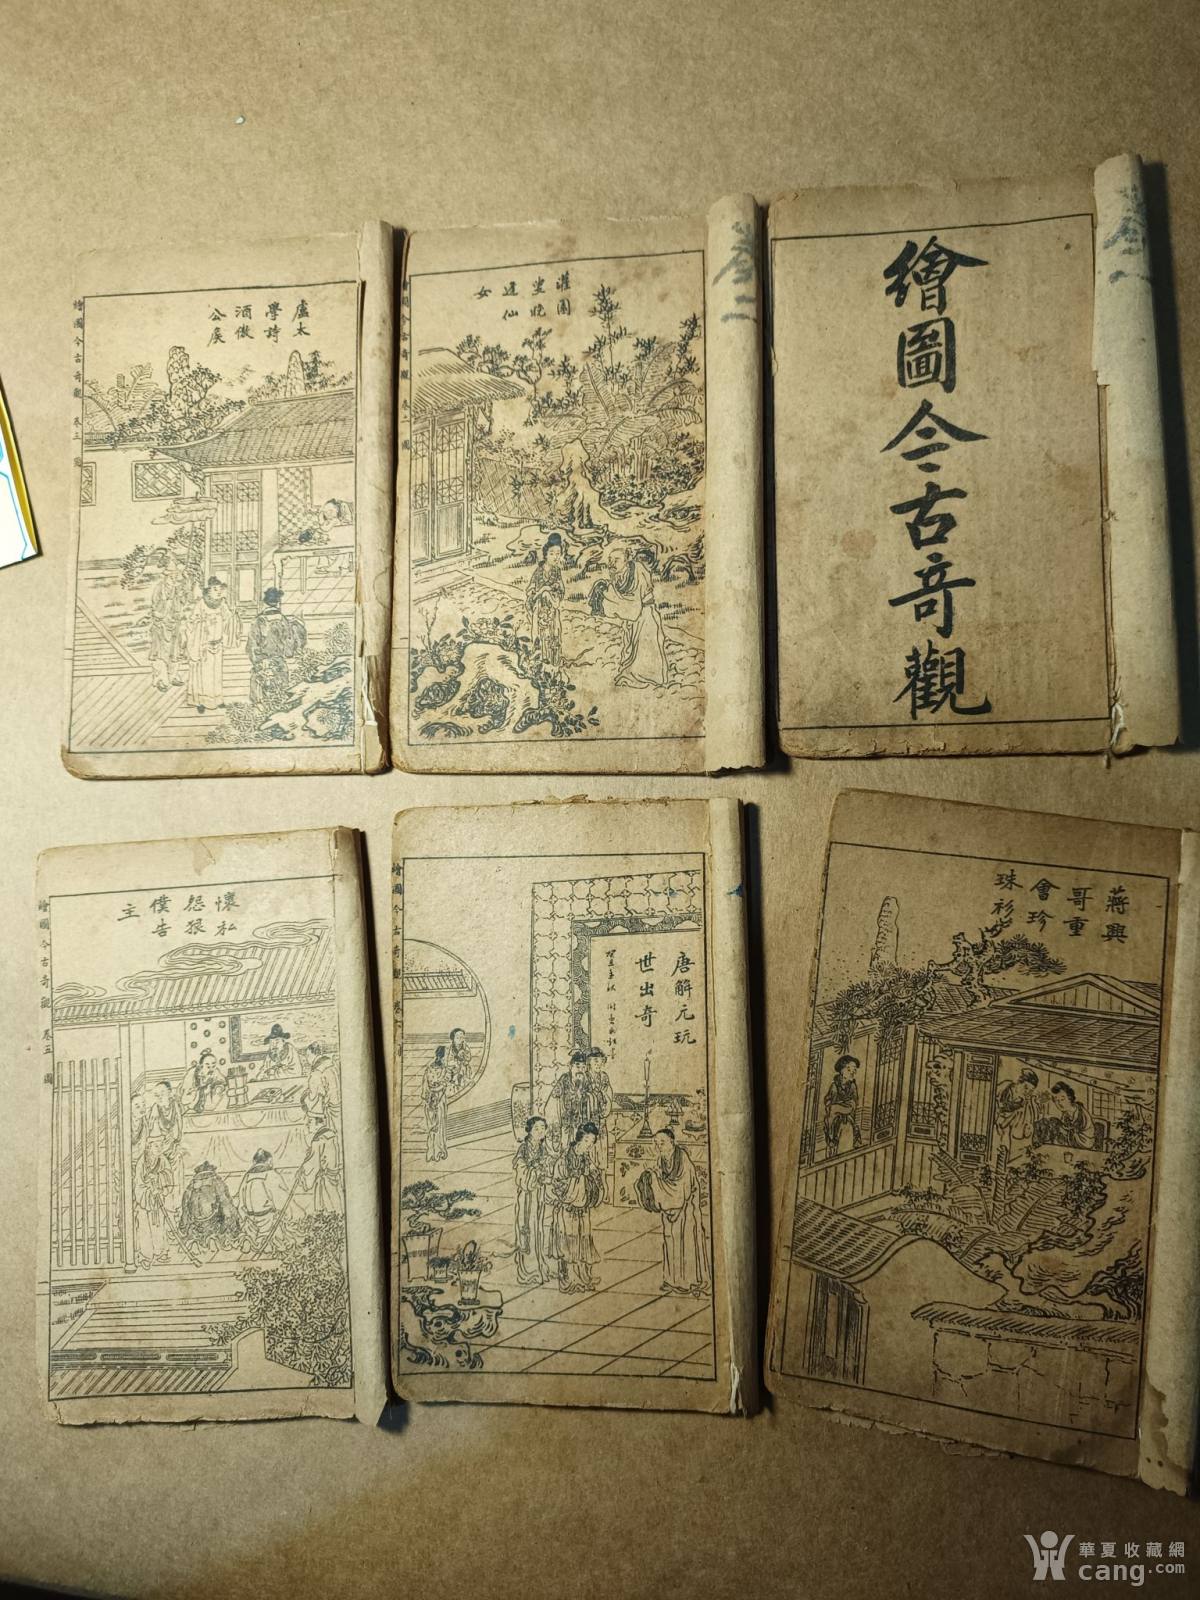 盧太
學詩
酒傲
公矦
繪圖今古奇觀 卷三 圖
灌園
叟晚
逢仙
女
繪圖今古奇觀 卷二 圖
一
繪圖今古奇觀
懷私
怨狠
僕告
主
繪圖今古奇觀 卷五 圖
一
唐解元玩
世出奇
繪圖今古奇觀
蔣興
哥重
會珍
珠衫
華夏收藏網
cang.com